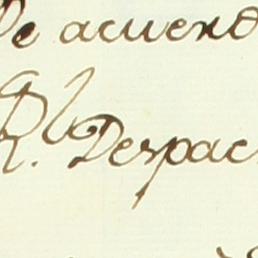 De acuerd
R. Despac